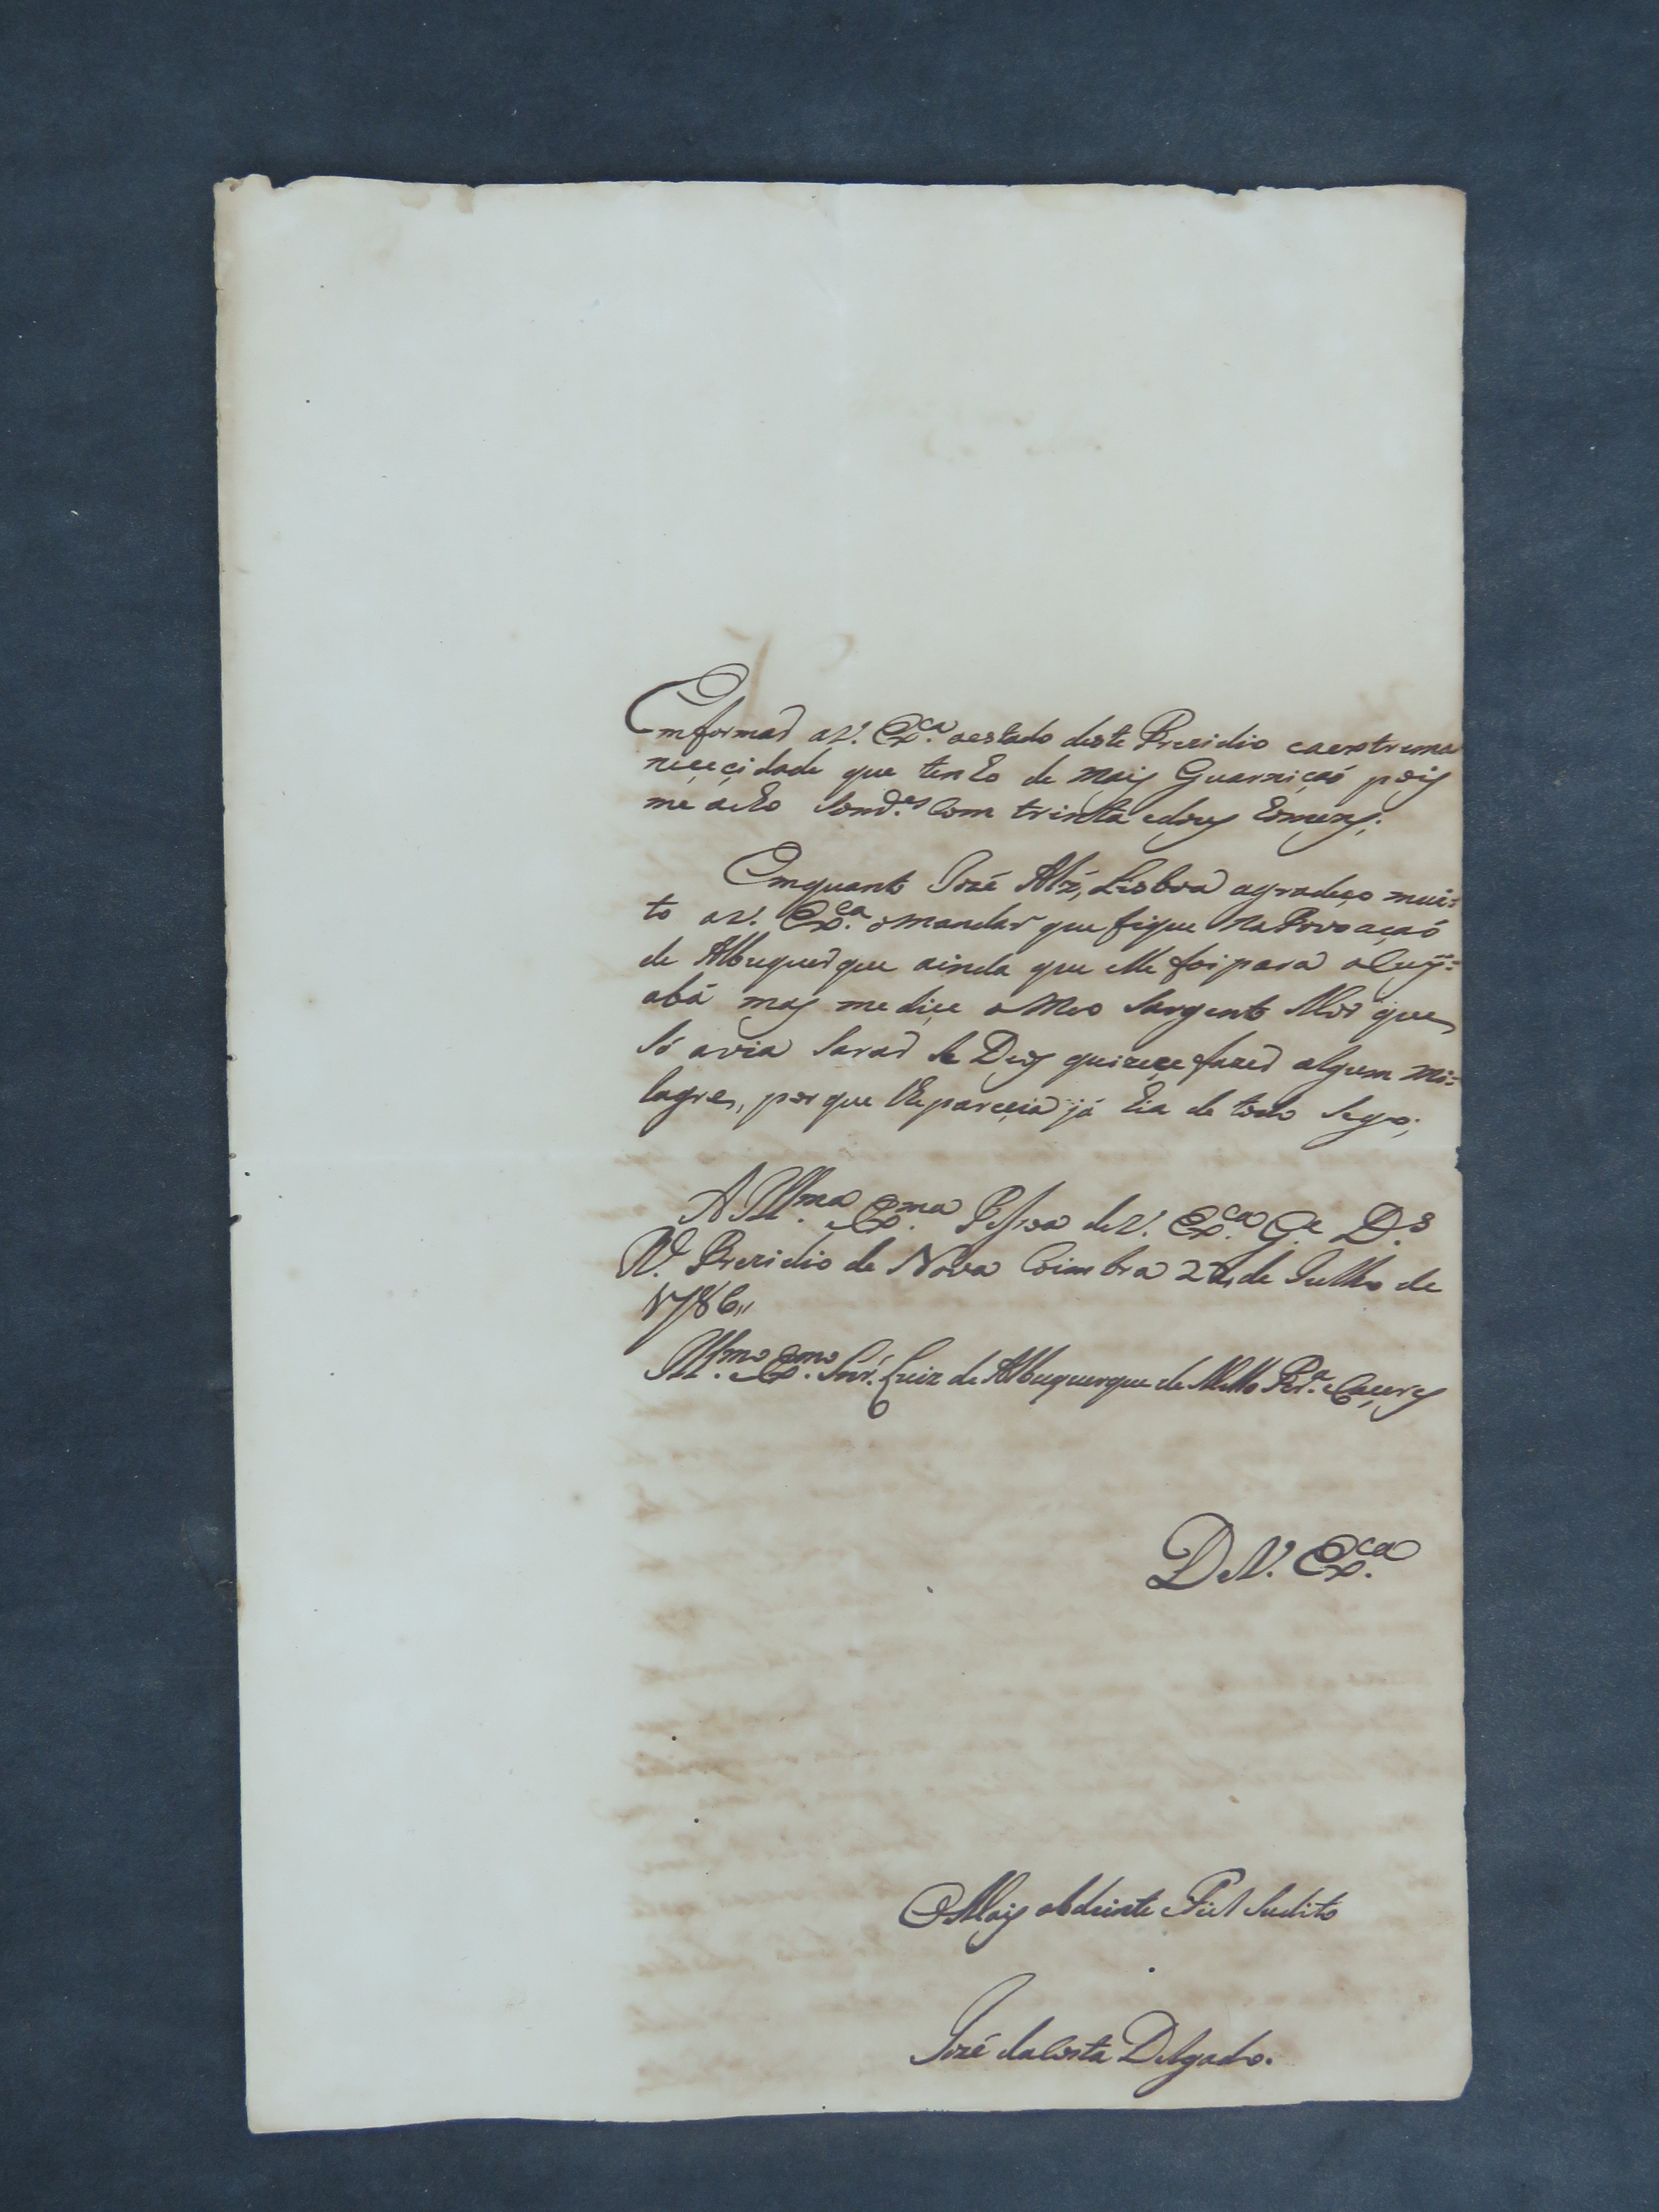 Emformar a V. Ex.ca o estado deste Prezidio e a extrema
nececidade que tenho de mais Guarnição pois
me acho som.es Com trinta e dous homens;
Emquanto José Alz, Lisboa agradeço mui=
to a V. Ex.ca o mandar que fique na Povoação
de Albuquerque ainda que elle foi para o Cuy=
abá mas me dice o Meo Sargento Mor que
só avia Sarar se Deos quizece fazer algum mi=
lagre, por que lhe parecia já hia de todo Sego;
A Ill.ma e Ex.ma Pessoa de V. Ex.ca G.e D.s
N. Prezidio de Nova Coimbra de Julho de
1786,,
Ill.mo e Ex.mo Snr. Luiz de Albuquerque de Mello Per.a e Caceres
De V. Ex.ca
O Mais obdiente e Fiel Sudito
José da Costa Delgado.